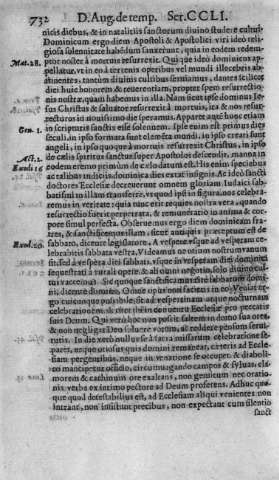 732 D. Aug. de temp. Ser. CCLI.
nicis diebus, & in natalitiis sanctorum diuino studere cultui
Dominicum ergo diem Apostoli & Apostolici viri ideo reli-
giosa solennitate habendum sanxerunt, quia in eodem redem-
Mat. 28. ptor noster à mortuis resurrexit. Qui que ideo dominicus ap-
pellatur, vt in eo à terrenis operibus vel mundi illecebris abs-
tinentes, tantum diuinis cultibus seruiamus, dantes scilicet
diei huic honorem & reuerentiam, propter spem resurrectio-
nis nostræ, quam habemus in illa. Nam sicut ipse dominus Ie-
sus Christus & saluator resurrexit à mortuis, ita & nos resur-
recturos in nouissimo die speramus. Apparet autem hunc etiam
Gen. 1. in scripturis sanctis esse solennem. Ipse enim est primus dies
seculi, in ipso formata sunt elementa mundi, in ipso creati sunt
angeli, in ipso quoque à mortuis resurrexit Christus, in ipso
Act. 2. de cœlis spiritus sanctus super Apostolos descendit, manna in
Exod. 16 eodem eremo primum de cœlo datum est. His enim speciebus
ac talibus indiciis dominica dies extat insignis. Ac ideo sancti
doctores Ecclesiæ decreuerunt omnem gloriam Iudaici sab-
batismi in illam transferre, vt quod ipsi in figura, nos celebra-
remus in veritate: quia tunc erit requies nostra vera, quando
resurrectio fuerit perpetrata, & remuneratio in anima & cor-
pore simul perfecta. Obseruemus ergo diem dominicam fra-
tres, & sanctificemus illam, sicut antiquis præceptum est de
Exod. 20. sabbato, dicente legislatore, A vespera vsque ad vesperam ce-
lebrabitis sabbata vestra. Videamus ne otium nostrum vanum
sit, sed à vespera diei sabbati, vsque in vesperam diei dominici
sequestrati à rurali opere, & ab omni negotio, soli diuino cul-
tui vacemus. Sic quoque sanctificamus rite sabbatum domi-
ni, dicente domino, Omne opus non facietis in eo. Veniat er-
go cuicunque possibile, sit ad vespertinam atque nocturnam
celebrationem, & oret ibi in conuentu Ecclesiæ pro peccatis
suis Deum. Qui verò hoc non possit, saltem in domo sua oret,
& non negligat Deo soluere votum, ac reddere pensum serui-
tutis. In die verò nullus se à sacra missarum celebratione se-
paret, neque otiosus quis domi remaneat, cæteris ad Eccle-
siam pergentibus, neque in venatione se occupet, & diaboli-
co mancipetur officio, circumuagando campos & syluas, cla-
morem & cachinnum ore exaltans, non gemitum nec oratio-
nis verba ex intimo pectore ad Deum proferens. Adhuc quo-
que quod detestabilius est, ad Ecclesiam aliqui venientes non
intrant, non insistunt precibus, non expectant cum silentio
sanct